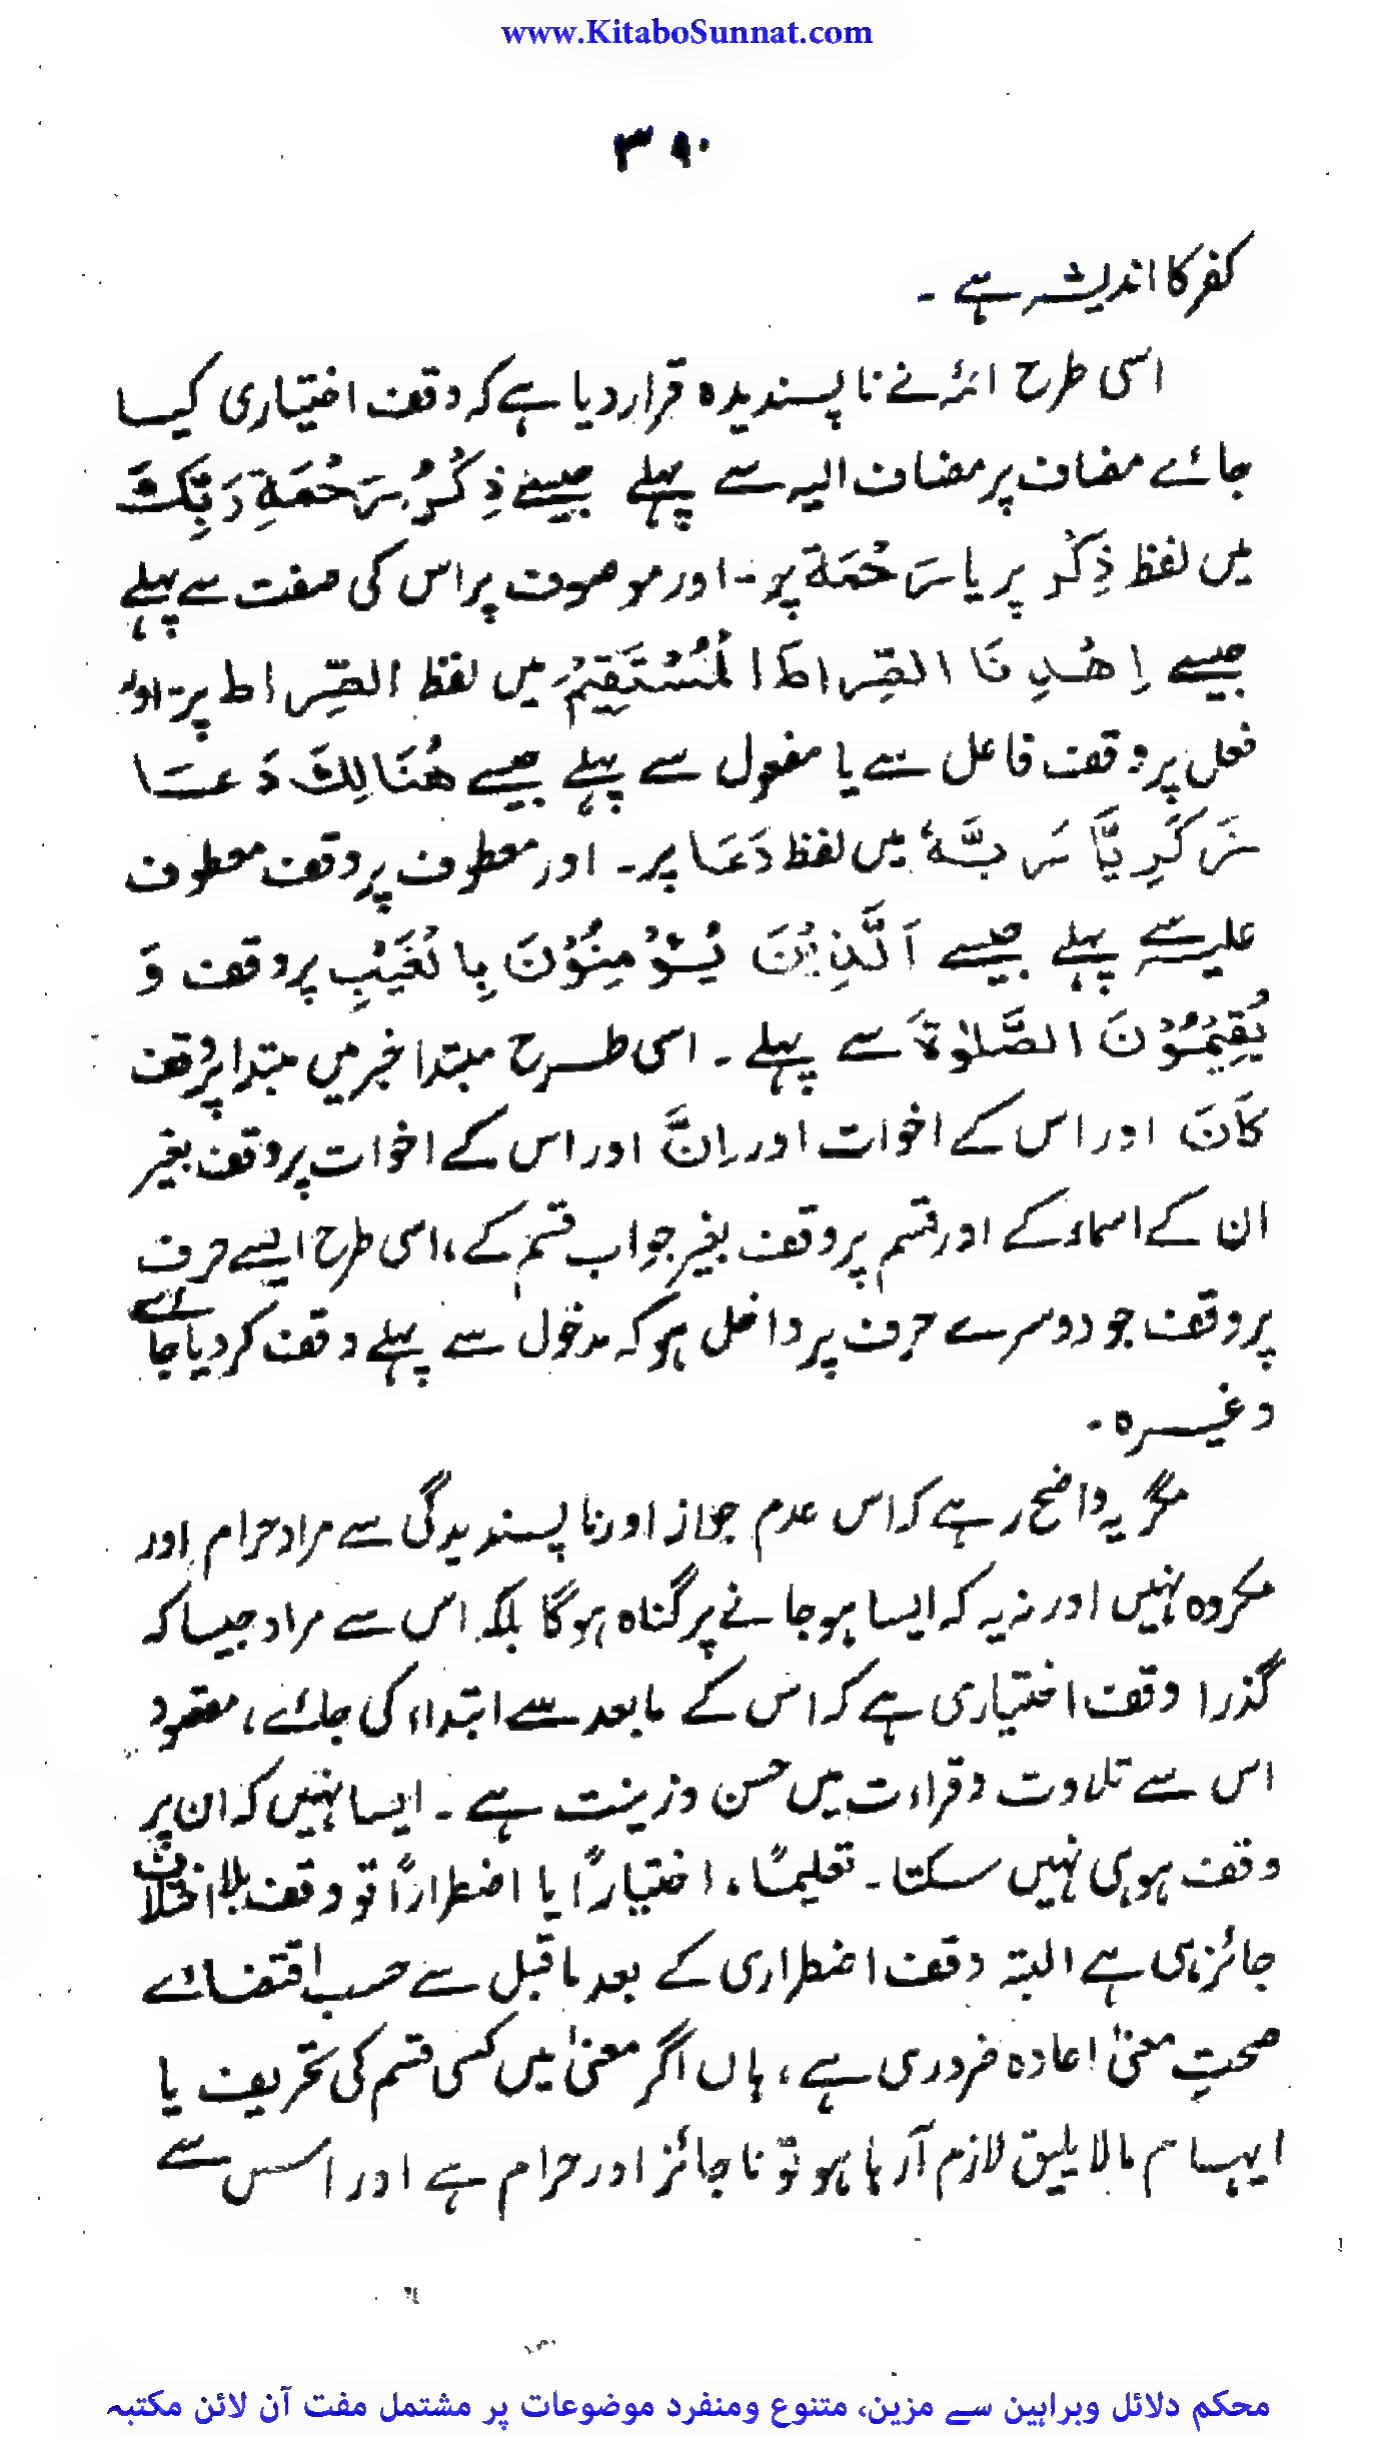 www.KitaboSunnat.com
۳۹۰
کفر کا اندیشہ ہے ۔
اسی طرح ائمہ نے ناپسندیدہ قرار دیا ہے کہ وقف اختیاری کیا
جائے مضاف پر مضاف الیہ سے پہلے جیسے ذِکْرُ رَحْمَةِ رَبِّكَ
میں لفظ ذِکْر پر یا رَحْمَة پر ۔ اور موصوف پر اس کی صفت سے پہلے
جیسے اِهْدِنَا الصِّرَاطَ الْمُسْتَقِیْمَ میں لفظ الصِّرَاط پر ، اور
فعل پر وقف فاعل سے یا مفعول سے پہلے جیسے هُنَالِكَ دَعَا
زَكَرِيَّا رَبَّهٗ میں لفظ دَعَا پر ۔ اور معطوف پر وقف معطوف
علیہ سے پہلے جیسے اَلَّذِيْنَ يُؤْمِنُوْنَ بِالْغَيْبِ پر وقف وَ
يُقِيْمُوْنَ الصَّلٰوةَ سے پہلے ۔ اسی طرح مبتدا خبر میں مبتدا پر وقف
كَانَ اور اس کے اخوات اور اِنَّ اور اس کے اخوات پر وقف بغیر
ان کے اسماء کے اور قسم پر وقف بغیر جواب قسم کے ، اسی طرح ایسے حرف
پر وقف جو دوسرے حرف پر داخل ہو کہ مدخول سے پہلے وقف کر دیا جائے
وغیرہ ۔
مگر یہ واضح رہے کہ اس عدم جواز اور ناپسندیدگی سے مراد حرام اور
مکروہ نہیں اور نہ یہ کہ ایسا ہو جانے پر گناہ ہوگا بلکہ اس سے مراد جیسا کہ
گذرا وقف اختیاری ہے کہ اس کے مابعد سے ابتداء کی جائے ، مقصود
اس سے تلاوت و قراءت میں حسن و زینت ہے ۔ ایسا نہیں کہ ان پر
وقف ہو ہی نہیں سکتا ۔ تعلیمًا ، اختیارًا یا اضطرارًا تو وقف بلا اختلاف
جائز ہی ہے البتہ وقف اضطراری کے بعد ماقبل سے حسب اقتضائے
صحتِ معنیٰ اعادہ ضروری ہے ، ہاں اگر معنیٰ میں کسی قسم کی تحریف یا
ایہام مالا یلیق لازم آرہا ہو تو ناجائز اور حرام ہے اور اس سے
محکم دلائل وبراہین سے مزین، متنوع ومنفرد موضوعات پر مشتمل مفت آن لائن مکتبہ